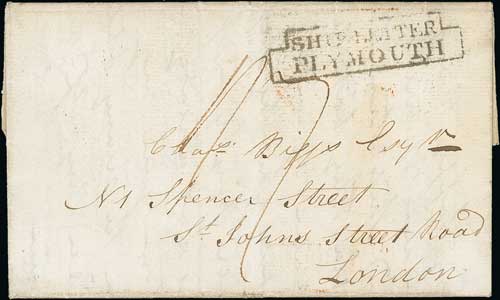 SHIP LETTER
PLYMOUTH
Chas. Biggs Esqr
No 1 Spencer Street
St Johns Street Road
London